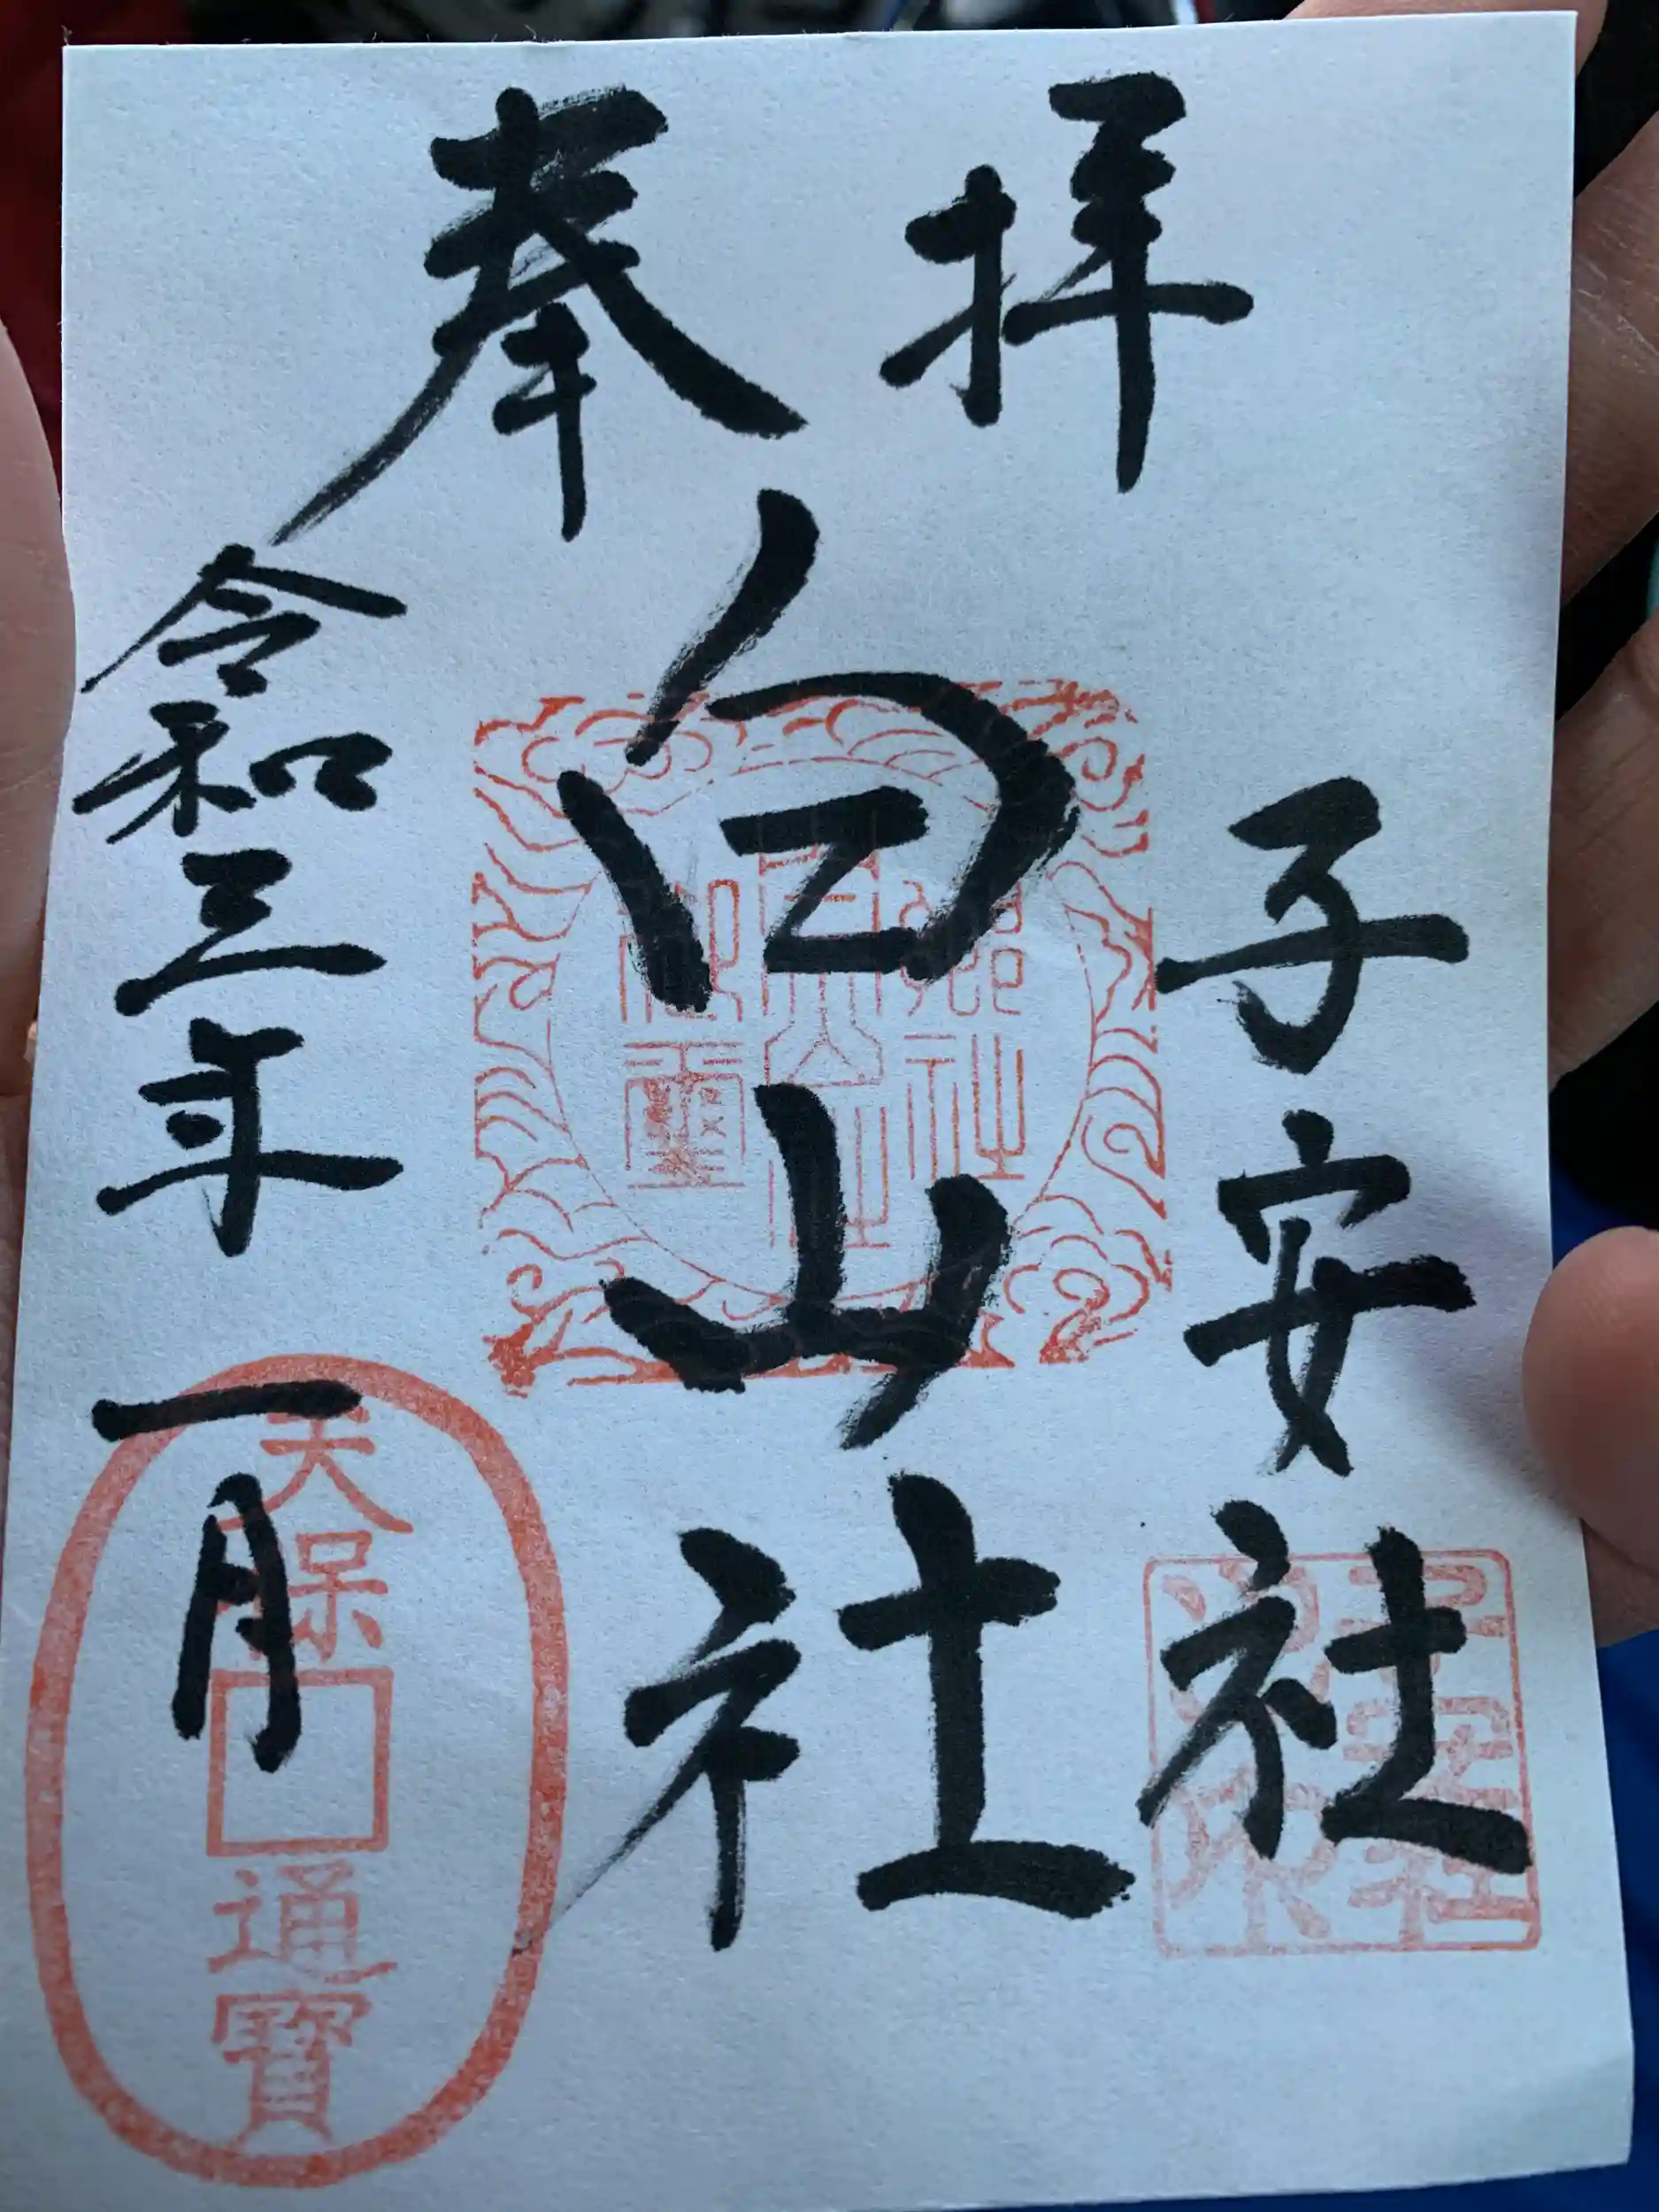 奉拝
子安社
白山社
令和三年一月
天保通寶
子安社